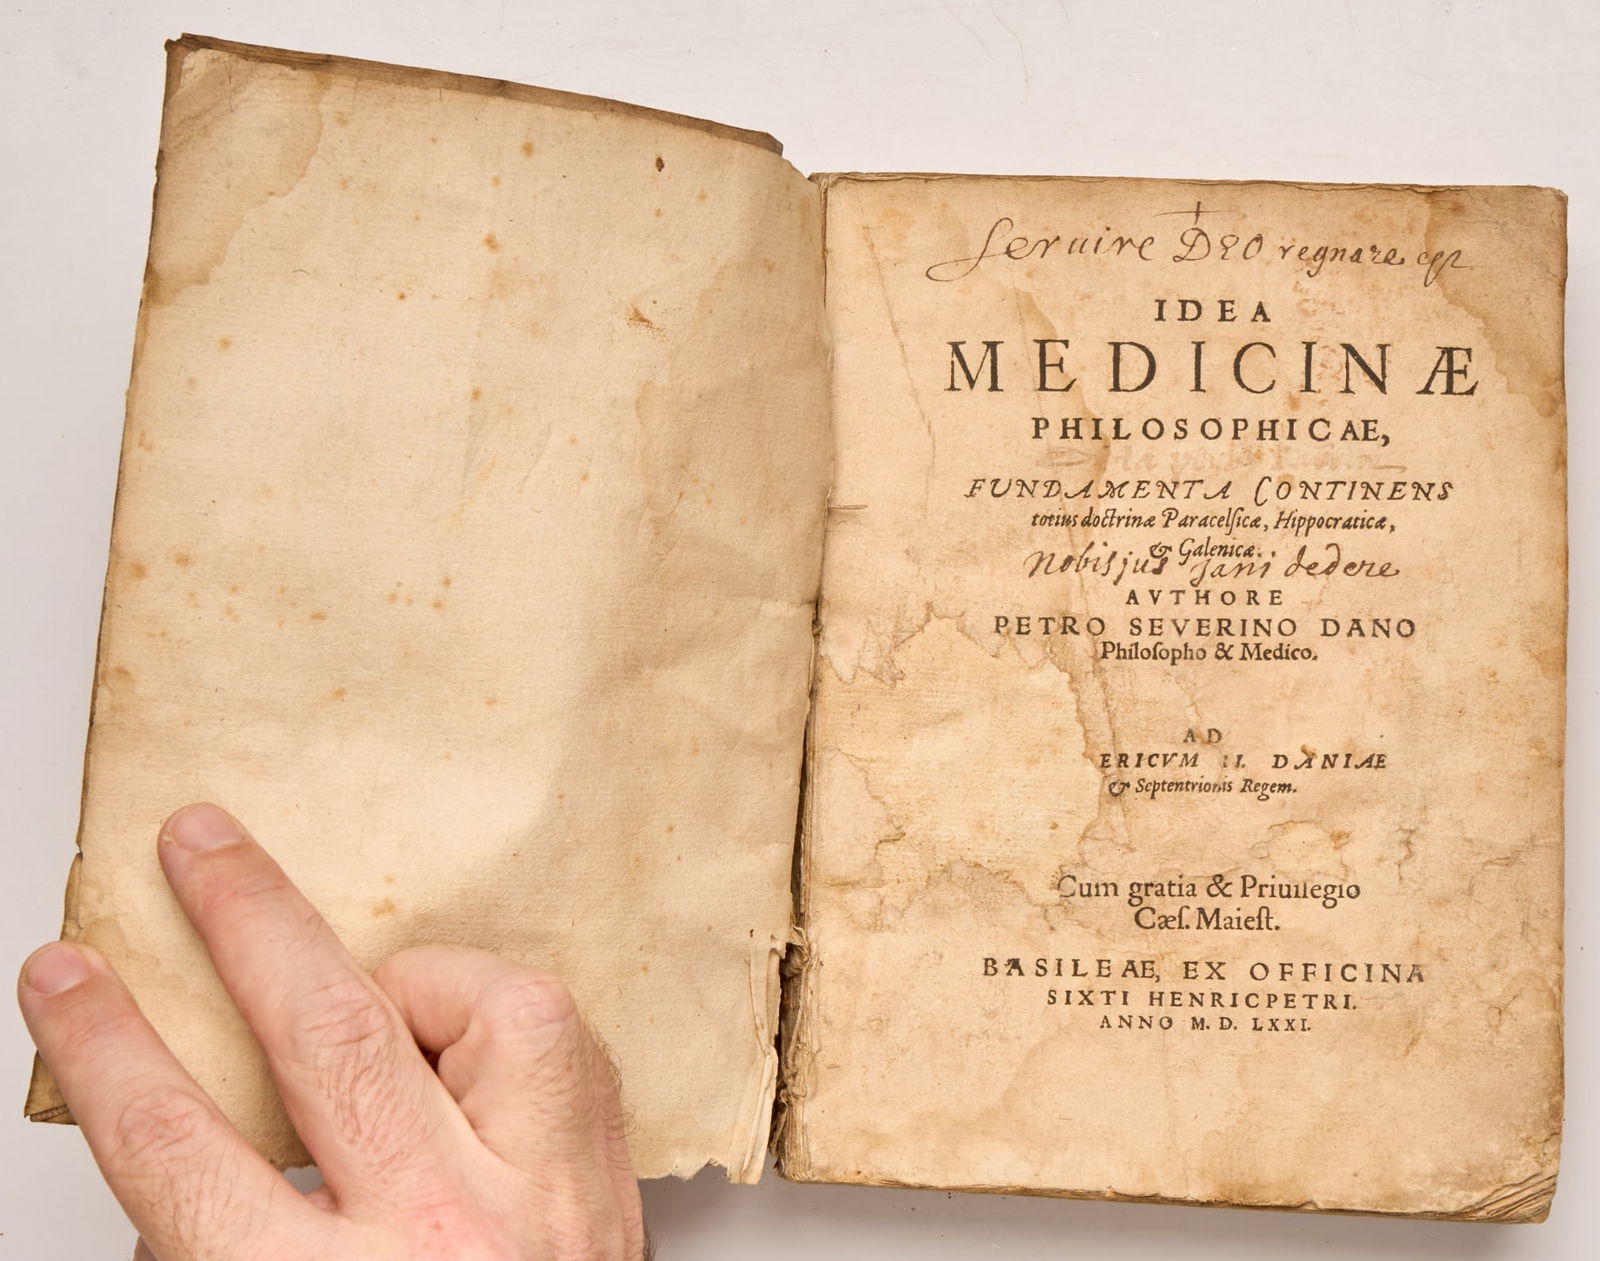 Seruire DEO regnare est
IDEA
MEDICINÆ
PHILOSOPHICAE,
FUNDAMENTA CONTINENS
totius doctrinæ Paracelſicæ, Hippocraticæ,
& Galenicæ.
Nobis jus Jani dedere
AVTHORE
PETRO SEVERINO DANO
Philoſopho & Medico.
AD
ERICVM DANIAE
& Septentrionis Regem.
Cum gratia & Priuilegio
Cæſ. Maieſt.
BASILEAE, EX OFFICINA
SIXTI HENRICPETRI.
ANNO M. D. LXXI.